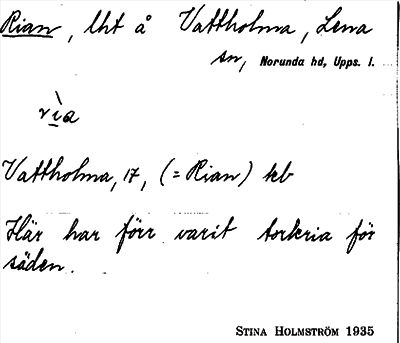 Rian, lht å Vattholma, Lena
sn, Norunda hd, Upps. l.
rìa
Vattholma, 17, (= Rian) kb
Här har förr varit torkria för
säden.
STINA HOLMSTRÖM 1935